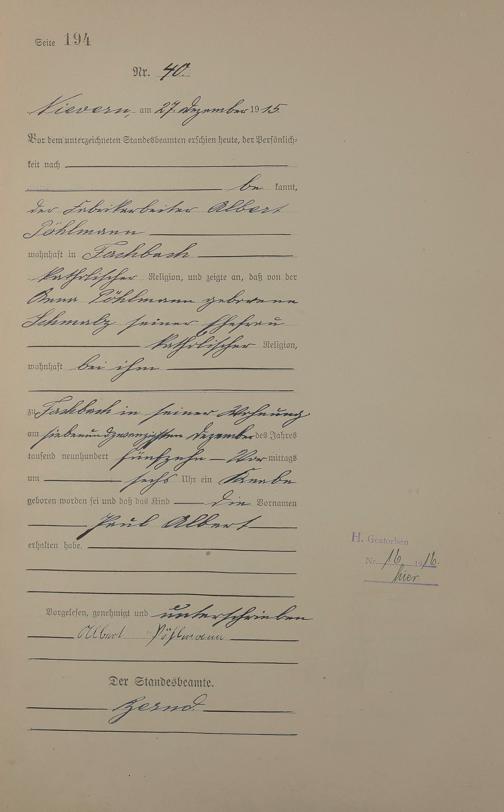 Seite 194
Nr. 40.
Nievern, am 27. Dezember 1915.
Vor dem unterzeichneten Standesbeamten erschien heute, der Persönlich-
keit nach
be kannt,
der Fabrikarbeiter Albert
Pöhlmann
wohnhaft in Fachbach
katholischer Religion, und zeigte an, daß von der
Anna Pöhlmann geborene
Schmalz seiner Ehefrau
katholischer Religion,
wohnhaft bei ihm
zu Fachbach in seiner Wohnung
am siebenundzwanzigsten Dezember des Jahres
tausend neunhundert fünfzehn Vor mittags
um sechs Uhr ein Knabe
geboren worden sei und daß das Kind die Vornamen
Paul Albert
erhalten habe.
H. Gestorben
Nr. 16 1916.
hier
Vorgelesen, genehmigt und unterschrieben
Albert Pöhlmann
Der Standesbeamte.